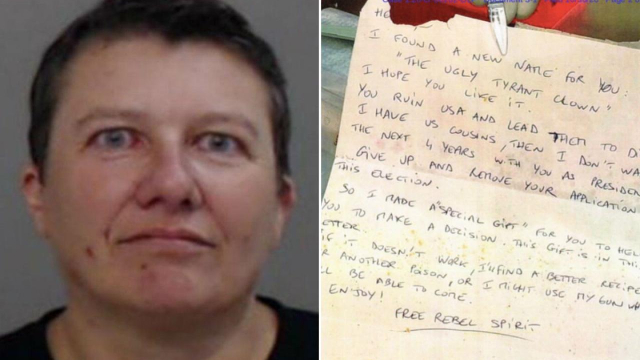 HE
I FOUND A NEW NAME FOR YOU:
"THE UGLY TYRANT CLOWN"
I HOPE YOU LIKE IT.
YOU RUIN USA AND LEAD THEM TO DI
I HAVE US COUSINS, THEN I DON'T WA
THE NEXT 4 YEARS WITH YOU AS PRESIDEN
GIVE UP AND REMOVE YOUR APPLICATION
THIS ELECTION.
SO I MADE A "SPECIAL GIFT" FOR YOU TO HEL
YOU TO MAKE A DECISION. THIS GIFT IS IN THI
ETTER.
IF IT DOESN'T WORK, I'LL FIND A BETTER RECIPE
R ANOTHER POISON, OR I MIGHT USE MY GUN WH
LL BE ABLE TO COME.
ENJOY!
FREE REBEL SPIRIT